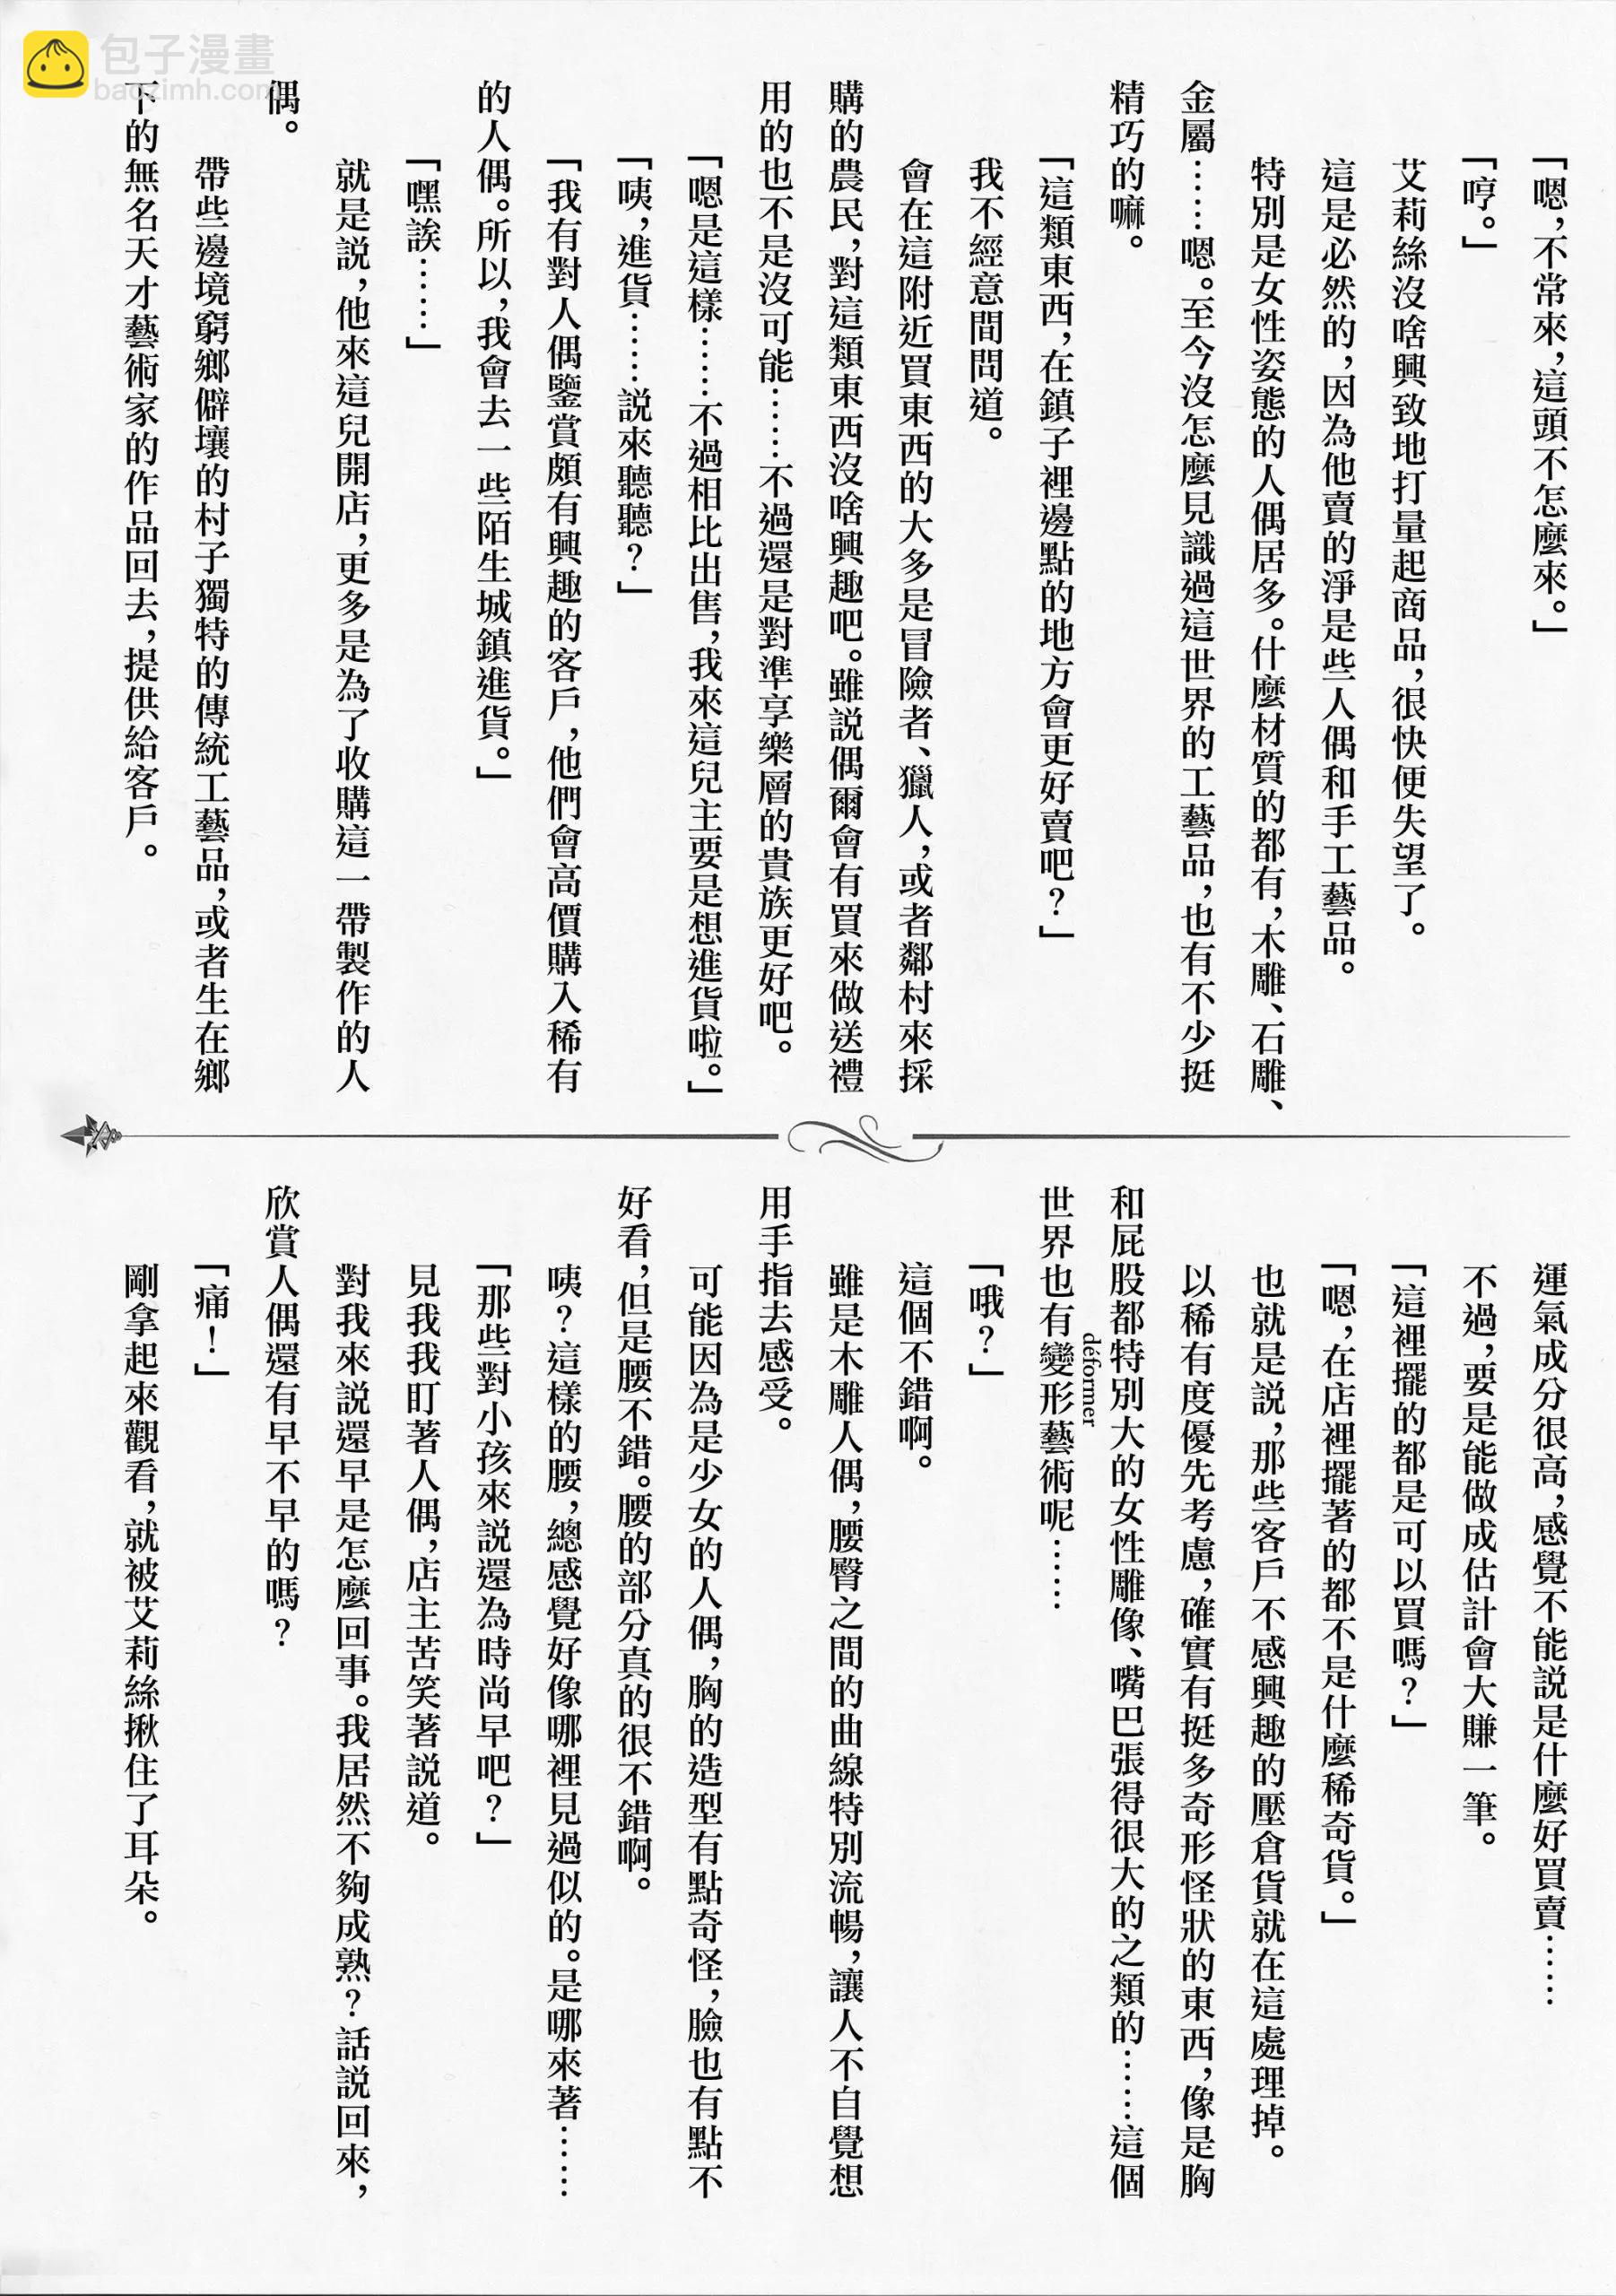 包子漫畫
baozimh.com
「嗯，不常來，這頭不怎麼來。」
「哼。」
艾莉絲沒啥興致地打量起商品，很快便失望了。
這是必然的，因為他賣的淨是些人偶和手工藝品。
特別是女性姿態的人偶居多。什麼材質的都有，木雕、石雕、
金屬……嗯。至今沒怎麼見識過這世界的工藝品，也有不少挺
精巧的嘛。
「這類東西，在鎮子裡邊點的地方會更好賣吧？」
我不經意間問道。
會在這附近買東西的大多是冒險者、獵人，或者鄰村來採
購的農民，對這類東西沒啥興趣吧。雖說偶爾會有買來做送禮
用的也不是沒可能……不過還是對準享樂層的貴族更好吧。
「嗯是這樣……不過相比出售，我來這兒主要是想進貨啦。」
「咦，進貨……說來聽聽？」
「我有對人偶鑒賞頗有興趣的客戶，他們會高價購入稀有
的人偶。所以，我會去一些陌生城鎮進貨。」
「嘿誒……」
就是說，他來這兒開店，更多是為了收購這一帶製作的人
偶。
帶些邊境窮鄉僻壤的村子獨特的傳統工藝品，或者生在鄉
下的無名天才藝術家的作品回去，提供給客戶。
運氣成分很高，感覺不能說是什麼好買賣……
不過，要是能做成估計會大賺一筆。
「這裡擺的都是可以買嗎？」
「嗯，在店裡擺著的都不是什麼稀奇貨。」
也就是說，那些客戶不感興趣的壓倉貨就在這處理掉。
以稀有度優先考慮，確實有挺多奇形怪狀的東西，像是胸
和屁股都特別大的女性雕像、嘴巴張得很大的之類的……這個
déformer
世界也有變形藝術呢……
「哦？」
這個不錯啊。
雖是木雕人偶，腰臀之間的曲線特別流暢，讓人不自覺想
用手指去感受。
可能因為是少女的人偶，胸的造型有點奇怪，臉也有點不
好看，但是腰不錯。腰的部分真的很不錯啊。
咦？這樣的腰，總感覺好像哪裡見過似的。是哪來著……
「那些對小孩來說還為時尚早吧？」
見我我盯著人偶，店主苦笑著說道。
對我來說還早是怎麼回事。我居然不夠成熟？話說回來，
欣賞人偶還有早不早的嗎？
「痛！」
剛拿起來觀看，就被艾莉絲揪住了耳朵。